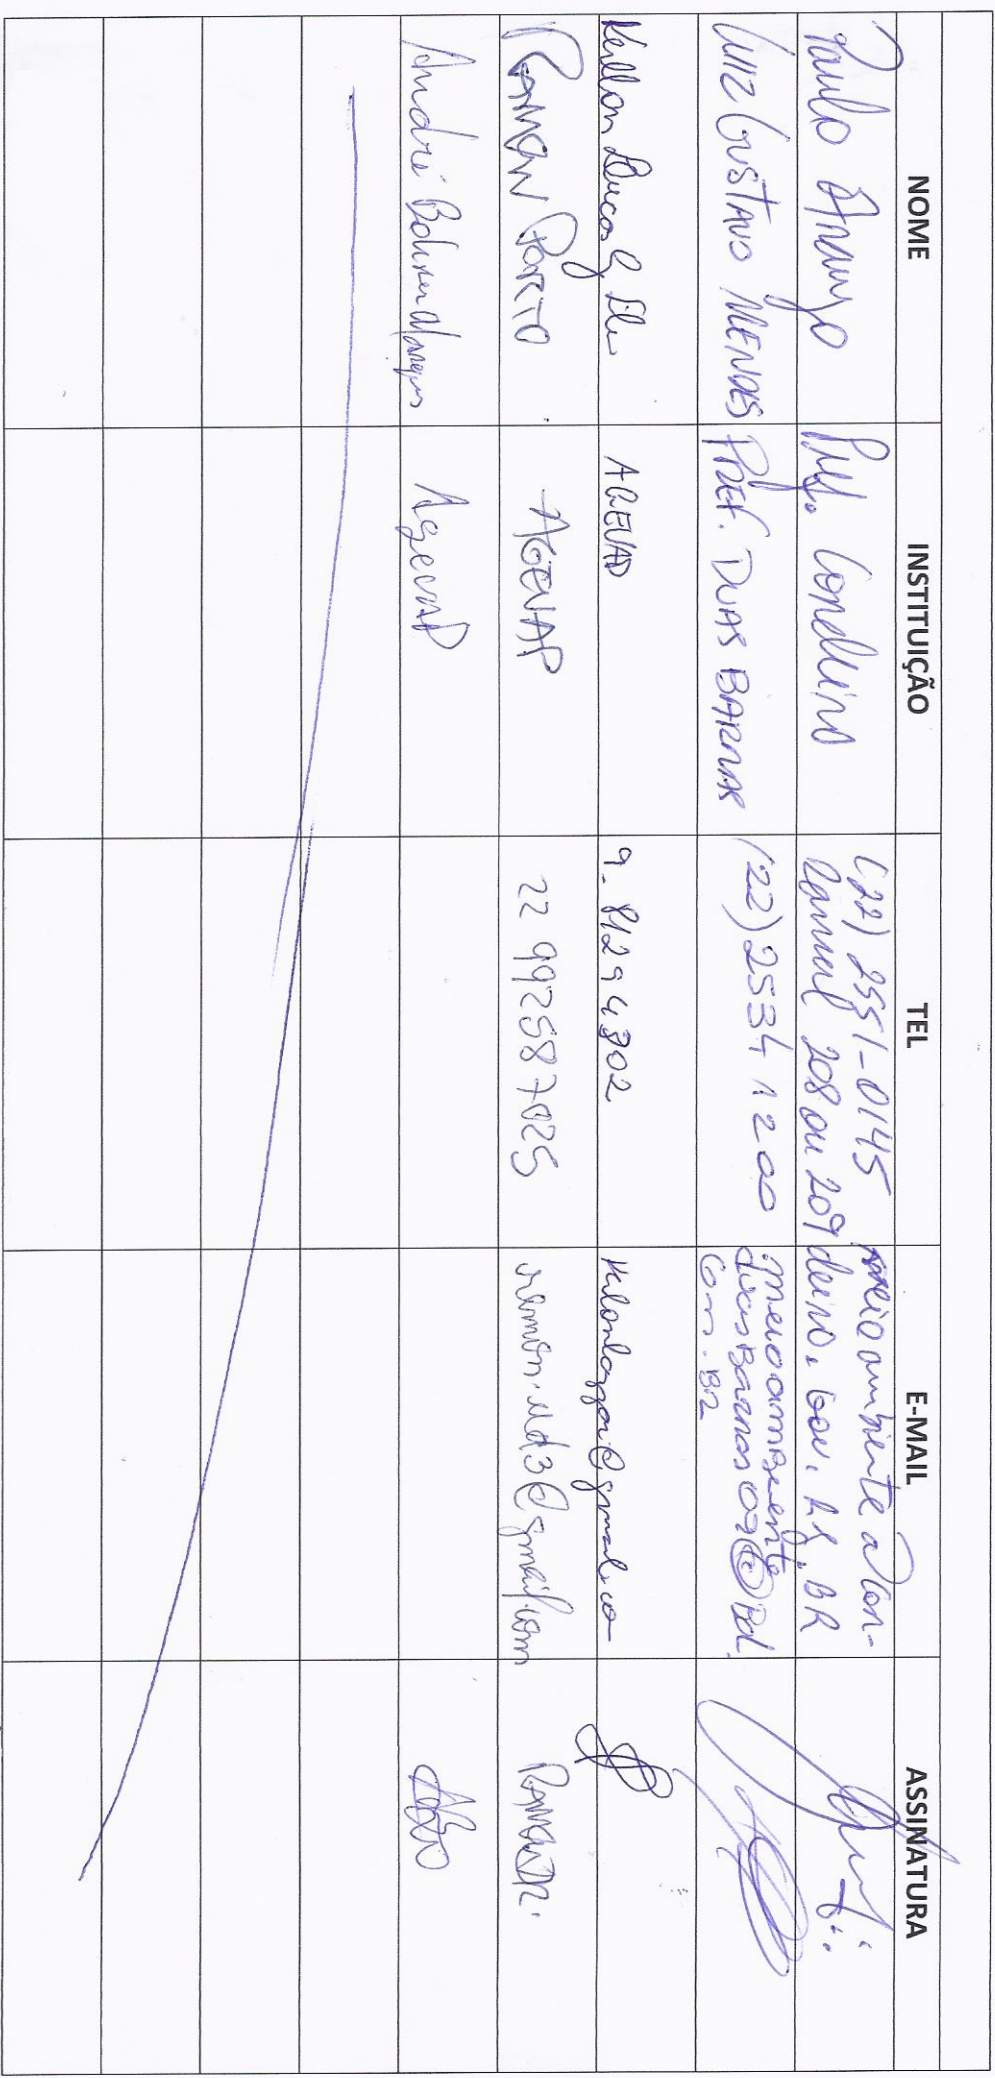 NOME INSTITUIÇÃO TEL E-MAIL ASSINATURA
Paulo Araujo Pref. Cordeiro (22) 2551-0145 meioambiente@cor-
Ramal 208 ou 209 deiro.gov.RJ.BR
LUIZ GUSTAVO MENDES PREF. DUAS BARRAS (22) 2534 1200 meioambiente
duasBarras09@Pd.
com.BR
Lucas AGEVAP 9.81294802
RAMON PORTO AGEVAP 22 992587025 ramon.md3@gmail.com RAMON
André Bohrer Marques Agevap